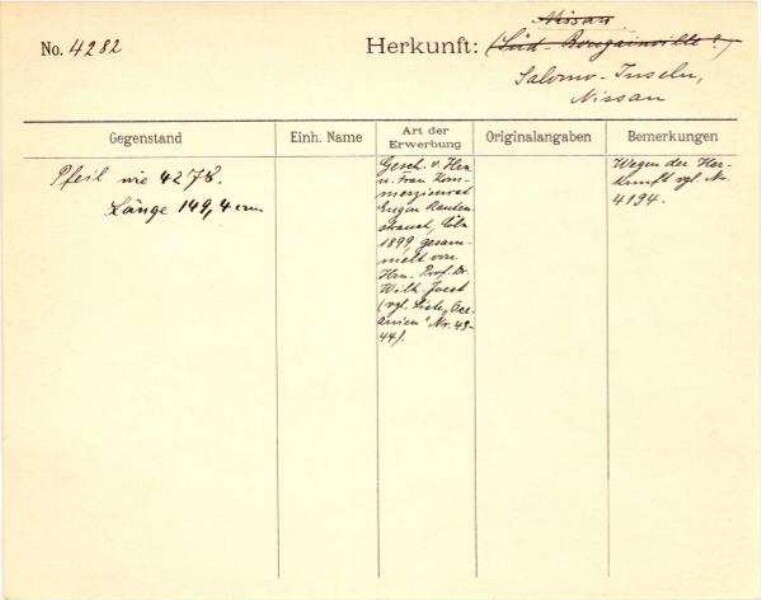 Nissan
No. 4282 Herkunft: (Süd-Bougainville?)
Salomo-Inseln,
Nissan
Gegenstand Einh. Name Art der Erwerbung Originalangaben Bemerkungen
Pfeil wie 4278.
Länge 149,4 cm
Gesch. v. Hrn
u. Frau Kom-
merzienrat
Eugen Rauten-
strauch, Cöln
1899, gesam-
melt von
Hrn. Prof. Dr.
Wilh. Joest
(vgl. Liste „Oce-
anien“ Nr. 43-
44).
Wegen der Her-
kunft vgl. Nr.
4194.